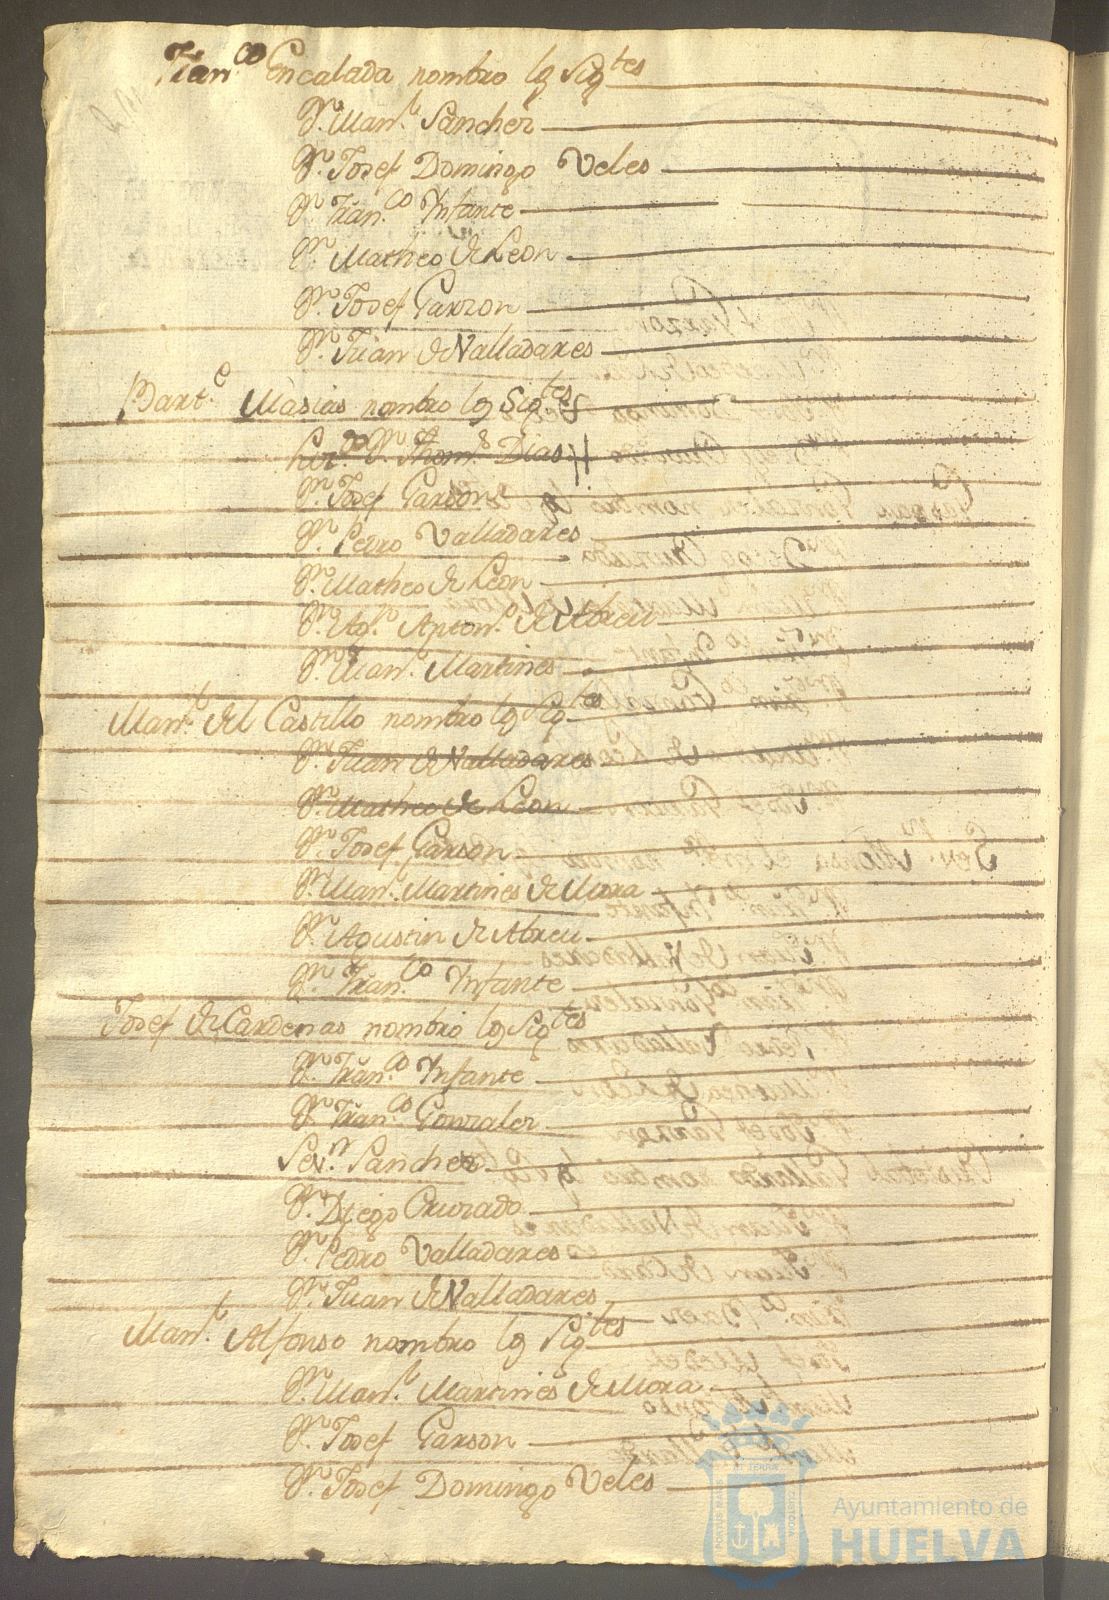 Fran.co Encalada nombro los Sigtes
Dn. Man.l Sanches
Dn. Josef Domingo Veles
Dn. Fran.co Ynfante
Dn. Matheo de Leon
Dn. Josef Garzon
Dn. Juan de Valladares
Bart.e Masias nombro los Sigtes
Lizdo. Dn. Thom.s Dias
Dn. Josef Garson
Dn. Pedro Valladares
Dn. Matheo de Leon
Dn. Ag.n Anton.o de Abreu
Dn. Man.l Martines
Man.l del Castillo nombro los Sigtes
Dn. Juan de Valladares
Dn. Matheo de Leon
Dn. Josef Garson
Dn. Man.l Martines de Mora
Dn. Agustin de Abreu
Dn. Fran.co Ynfante
Josef de Cardenas nombro los Sigtes
Dn. Fran.co Ynfante
Dn. Fran.co Gonzales
Sanchez
Dn. Diego Quizado
Dn. Pedro Valladares
Dn. Juan de Valladares
Man.l Alfonso nombro los Sigtes
Dn. Man.l Martines de Mora
Dn. Josef Garson
Dn. Josef Domingo Veles
Ayuntamiento de
HUELVA